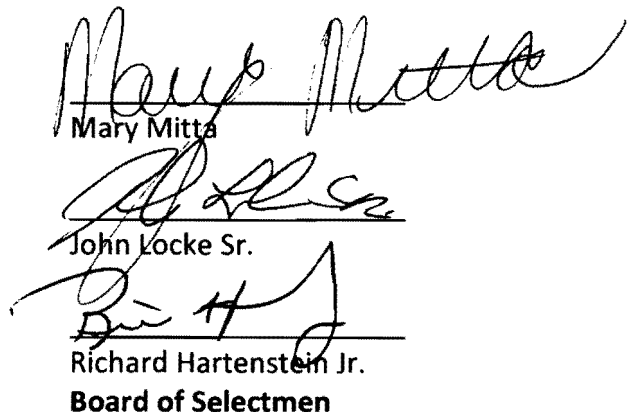 Mary Mitta
Mary Mitta
John Locke Sr.
Richard Hartenstein Jr.
Board of Selectmen